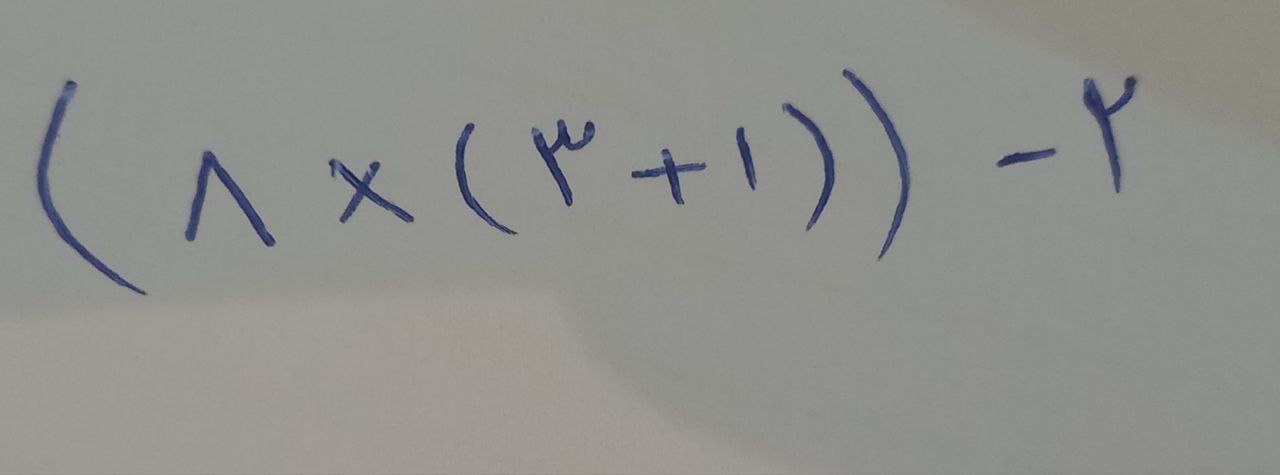 (۸ × (۳ + ۱)) - ۲